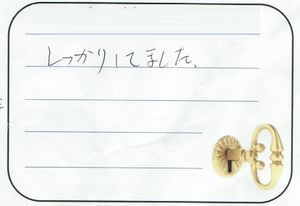 しっかりしてました、